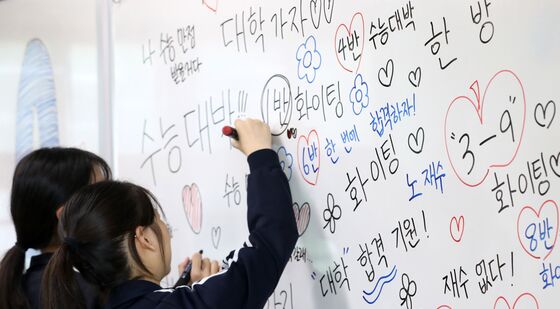 나 수능 만점
받을거다
대학 가자
4반
수능대박
한방
수능 대박!!!
1반 화이팅
합격하자!
6반 한 번에
화이팅
"3-9"
노재수
화이팅
수능
8반
화이
"대학" 합격 기원!
재수 없다!